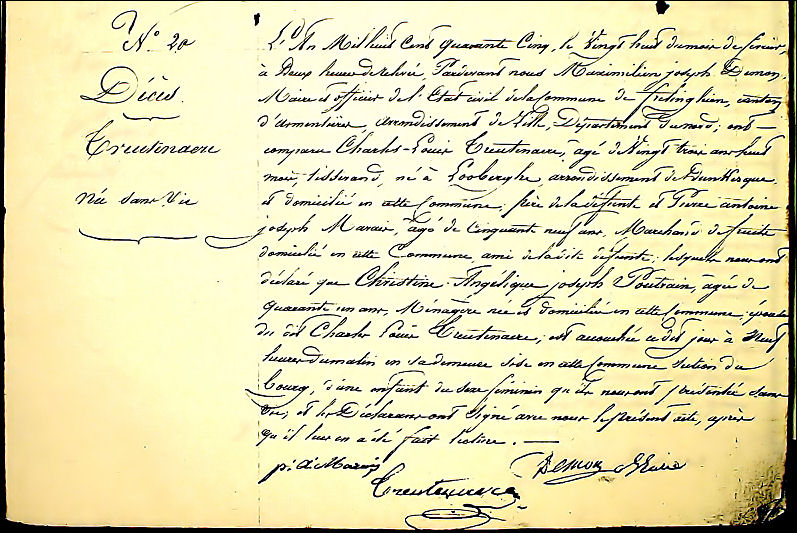 N° 20
Décès
Treutenaere
Née sans Vie
L'An Mil huit Cent quarante Cinq, le Vingt huit du mois de février,
à Deux heures de relevée, Pardevant nous Maximilien joseph Demon,
Maire et officier de l'Etat civil de la Commune de frelinghien, canton
d'armentières, arrondissement de Lille, Département du nord; ont
comparu Charles-Louis Treutenaere, agé de Vingt trois ans huit
mois, tisserand, né à Looberghe arrondissement de Dunkerque,
et domicilié en cette commune, père de la défunte et Pierre antoine
joseph Marais, agé de cinquante neuf ans, Marchand de
domicilié en cette Commune, ami de la dite défunte; lesquels nous ont
déclaré que Christine Angélique joseph Poutrain, agée de
quarante un ans, Ménagère née et domiciliée en cette commune, épouse
du dit Charles Louis Treutenaere; est accouchée ce dit jour à Neuf
heures du matin en sa demeure sise en cette Commune section du
bourg, d'une enfant du sexe féminin qu'ils nous ont présentée sans
vie, et les Déclarans ont signé avec nous le présent acte, après
qu'il leur en a été fait lecture.
p. a. j. Marais
Demon Maire
Treutenaere